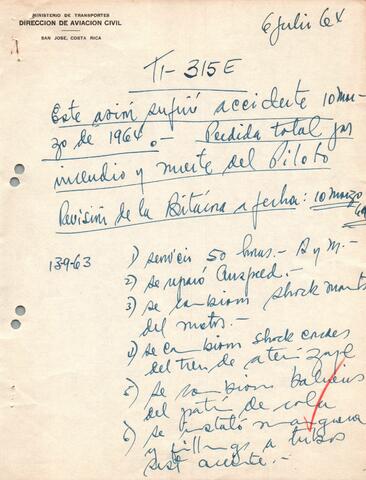 MINISTERIO DE TRANSPORTES
DIRECCION DE AVIACION CIVIL
SAN JOSE, COSTA RICA
6 julio 64
TI-315E
Este avión sufrió accidente 10 Mar-
zo de 1964.- Perdida total por
incendio y muerte del Piloto
Revisión de la Bitácora a fecha: 10 marzo
64
13-9-63
1) servicio 50 horas.- A y M.-
2) se reparó
3) se cambiaron shock mounts
del motor.-
4) se cambiaron shock cords
del tren de aterrizaje
5) se cambiaron
del patín de cola
6) se instaló manguera
y fittings a tubos
sist aceite.-